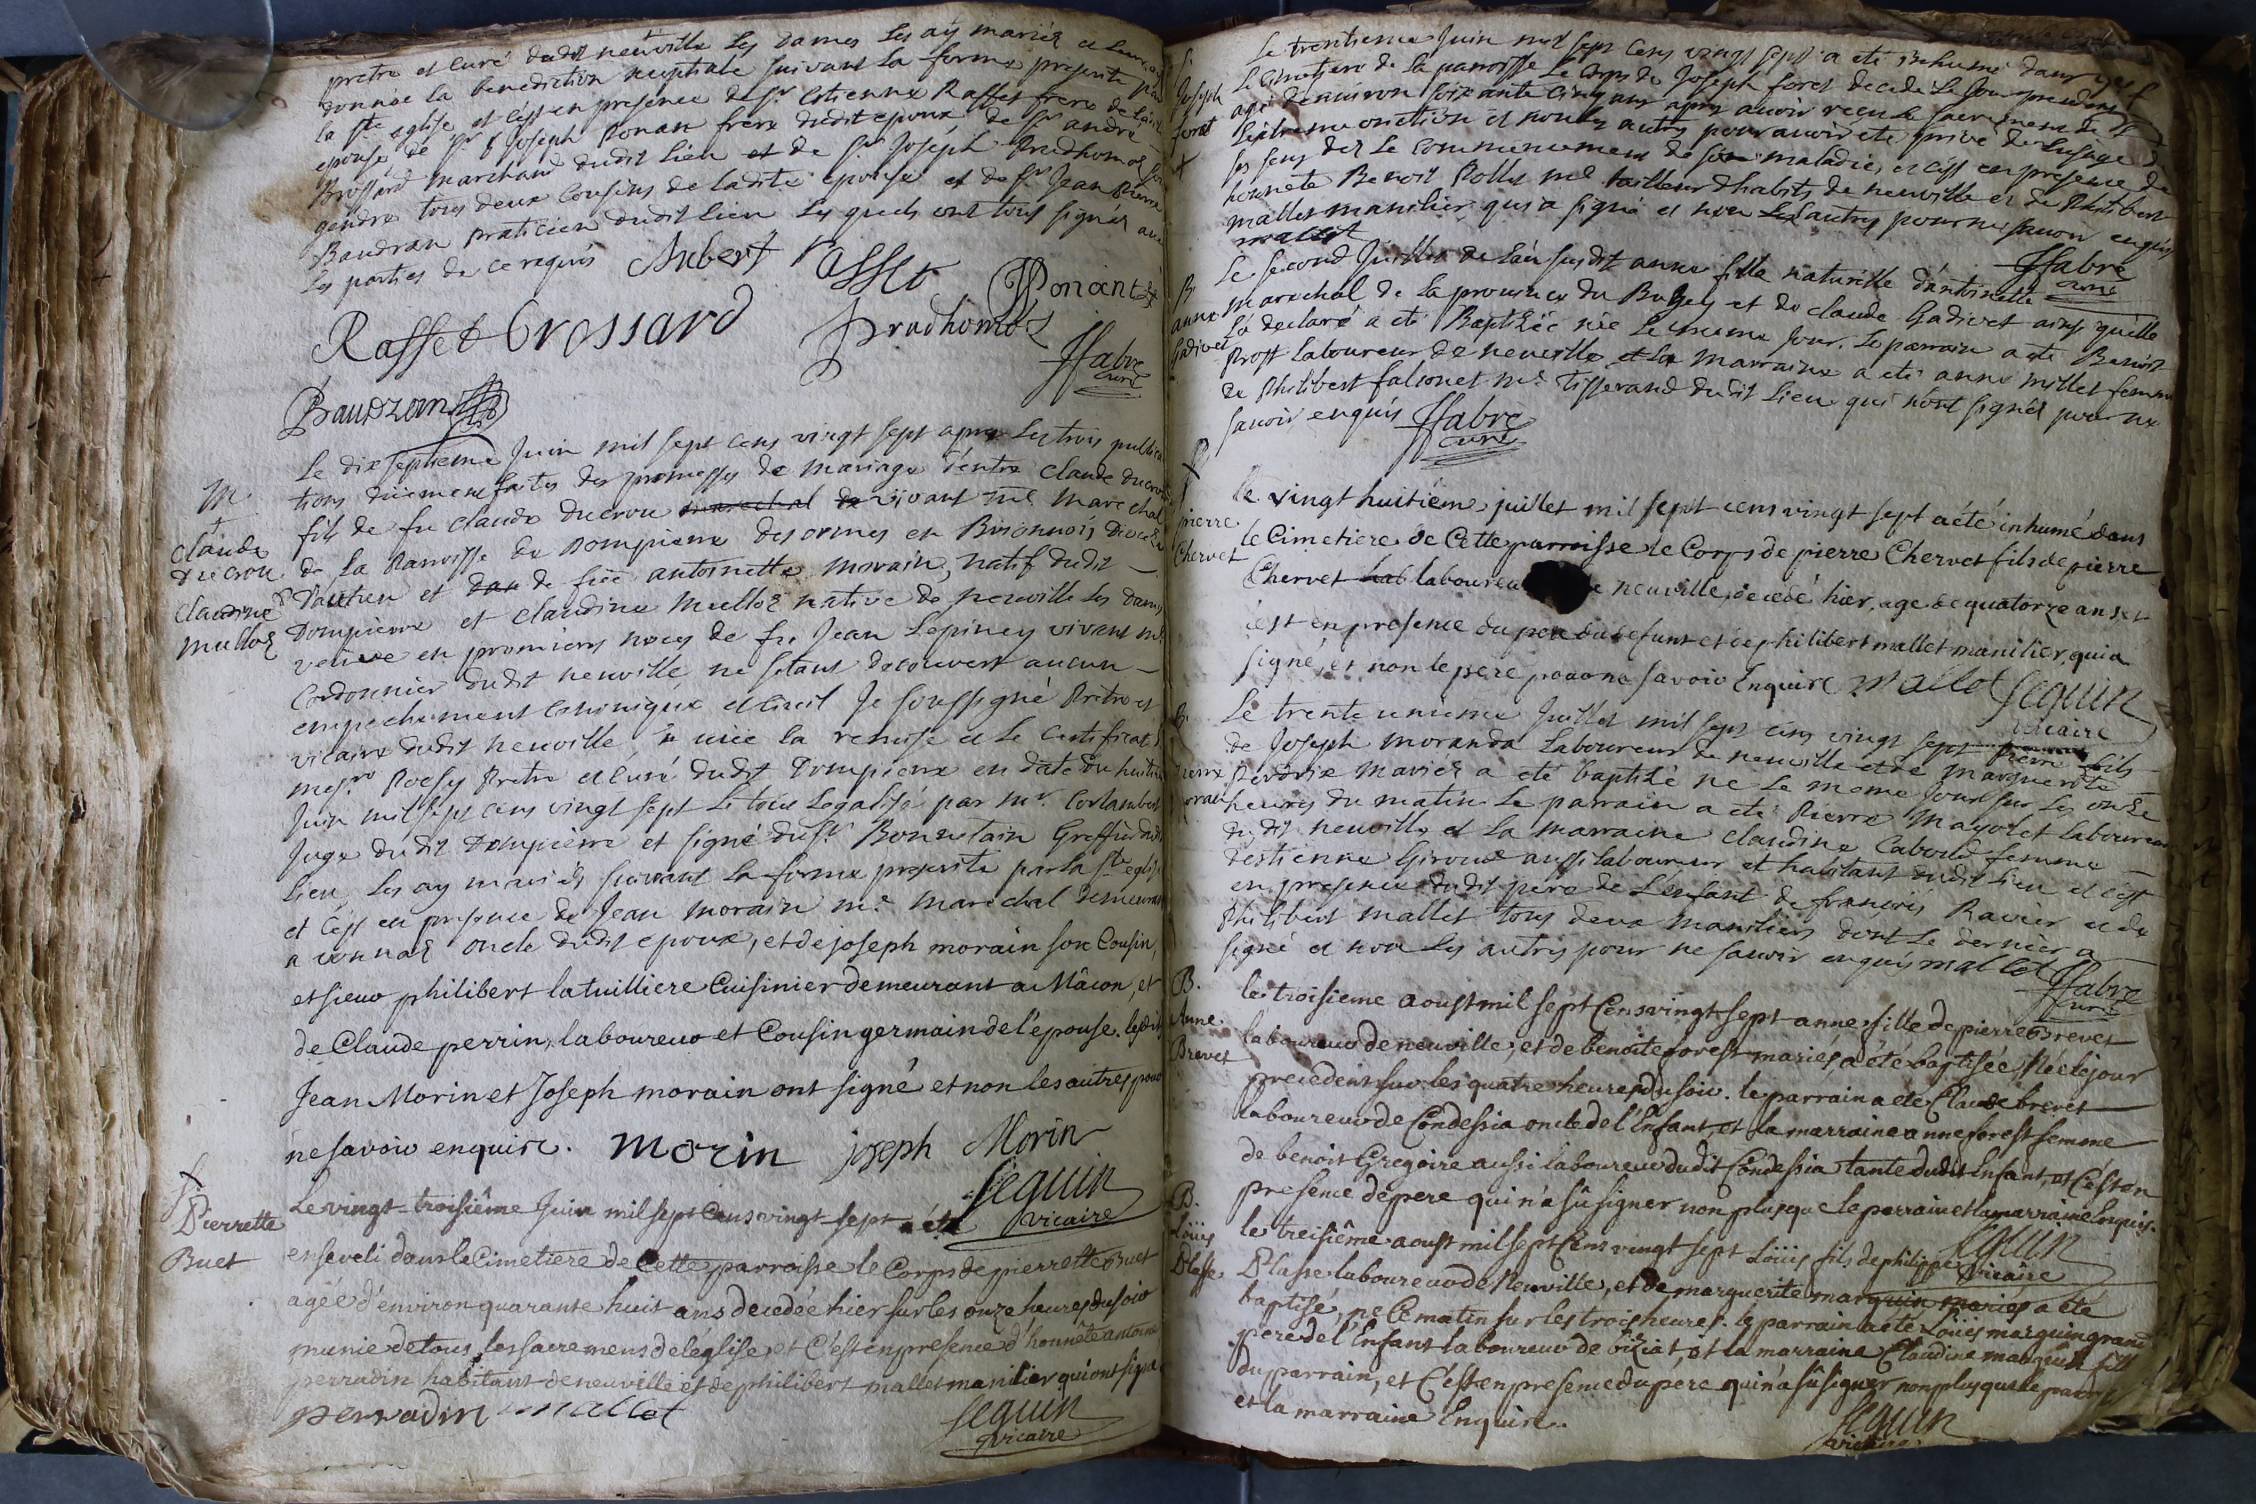 pretre et curé dudit neuville les dames les ay mariés et leur ay
donnée la benediction nuptiale suivant la forme prescrite par
la ste eglise et c'est en presence de sr Estienne Rasset frere de laditte
epouse, de sr Joseph Ponan frere dudit epoux, de sr andré
Brossard marchand dudit lieu et de sr Joseph Prudhomos son
gendre tous deux cousins de ladite epouse et de sr Jean Pierre
Baudran praticien dudit lieu lesquels ont tous signés avec
les parties de ce requis Aubert Rasset
Ponant
Rasset Brossard Prudhomos
ffabre curé
Baudran
M
Claude ducrou
Claudine mullos
Le dix septieme Juin mil sept cens vingt sept apres les trois publica
tions düement faites des promesses de mariage d'entre claude ducrou
fils de fu claude ducrou marechal de vivant me marechal
de la Paroisse de Dompierre desormes en Brionnois, Diocese
d'autun et dau de fuë antoinette morain, natif dudit
Dompierre et claudine mullos native de neuville les dames
veuve en premiers noces de fu Jean Lepiney vivant me
Cordonnier dudit neuville, ne s'etant decouvert aucun
empechement canonique et civil Je soussigné Prêtre et
vicaire dudit neuville, vuëe la remise et le certificat
messre Poesy Pretre et curé dudit Dompierre en date du huitie
Juin mil sept cens vingt sept le tout legalisé par mr. Corlambert
Juge dudit Dompierre et signé du sr Bonnetain Greffier dudit
lieu, les ay mariés suivant la forme prescrite par la ste eglise
et c'est en presence de Jean morain me. marechal demeurant
a vonnas oncle dudit epoux, et de joseph morain son Cousin,
et sieur philibert latuilliere Cuisinier demeurant a Mâcon, et
de Claude perrin, laboureur et Cousin germain de l'épouse. lesdits
Jean Morin et Joseph morain ont signé et non les autres pour
ne savoir enquis. morin joseph Morin
Seguin vicaire
Pierrette Buet
Le vingt-troisiême Juin mil sept Cens vingt-sept a été
enseveli dans le Cimetiere de Cette parroisse le Corps de pierrette Buet
agée d'environ quarante huit ans decedée hier sur les onze heures du soir
munie de tous les sacremens de l'église, et C'est en presence d'honnête antoine
perradin habitant de neuville et de philibert mallet manilier qui ont signé
perradin mallet
Seguin vicaire
S.
Joseph foret
Le trentieme Juin mil sept cens vingt sept a eté inhumé dans
le Cimetiere de la paroisse le Corps de Joseph foret decedé le Jour precedent
agé denviron soixante cinq ans apres avoir recu le sacrement de
l'extreme onction et non les autres pour avoir eté privé de l'usage de
ses sens dez le commencement de sa maladie, et c'est en presence de
honnete Benoit Pollet me tailleur d'habits de neuville et de Philibert
mallet manilier qui a signé et non les autres pour ne savoir enquis
mallet
ffabre curé
B.
anne Gadivet
Le second Juillet de l'an susdit anne fille naturelle d'antoinette
marechal de la province du Bugey et de claude Gadivet ainsi qu'elle
l'a declaré a eté Baptisée née le meme Jour. Le parrain a eté Benoit
Prost laboureur de neuville et la marraine a eté anne millet femme
de Philibert falconet me. Tisserand dudit lieu qui n'ont signés pour ne
savoir enquis ffabre curé
pierre Chervet
le vingt huitiéme juillet mil sept cens vingt sept a été inhumé dans
le Cimetiere de Cette parroisse le Corps de pierre Chervet fils de pierre
Chervet hab laboureur de neuville, decedé hier, age de quatorze ans et
c'est en presence du pere du defunt et de philibert mallet manilier, qui a
signé, et non le pere pour ne savoir Enquire mallet Seguin
vicaire
B.
Pierre moran
Le trente unieme Juillet mil sept cens vingt sept Pierre fils
de Joseph moranda Laboureur de neuville et de marguerite
Perdrix mariés a eté baptisé ne le meme Jour sur les onze
heures du matin le parrain a eté Pierre mayolet laboureur
dudit neuville et la marraine claudine Cabould femme
destienne Giroud aussi laboureur et habitant dudit lieu et c'est
en presence dudit pere de l'enfant de françois Ravier et de
Philibert mallet tous deux maniliers dont le dernier a
signé et non les autres pour ne savoir enquis mallet ffabre
curé
B.
Anne Brevet
le troisieme aoust mil sept Cens vingt-sept anne fille de pierre Brevet
laboureur de neuville, et de benoite forest mariés a été baptisée, Née le jour
precedent sur les quatre heures du soir. le parrain a eté Claude brevet
laboureur de Condessia oncle de l'Enfant, et la marraine anne forest femme
de benoit Gregoire aussi laboureur dudit Condessia tante dudit Enfant, et C'est en
presence de pere qui n'a sû signer non plus que le parrain et la marraine Enquis.
Seguin vicaire
B.
Loüis Blasse
le treisiême aoust mil sept Cens vingt sept Loüis fils de philippe
Blasse laboureur de Neuville, et de marguerite marguin mariés a eté
baptisé, ne Ce matin sur les trois heures. le parrain a eté Loüis marguin grand
pere de l'Enfant laboureur de biziat, et la marraine Claudine marguin fille
du parrain, et C'est en presence du pere qui n'a sû signer non plus que le parrain
et la marraine Enquis.
Seguin vicaire